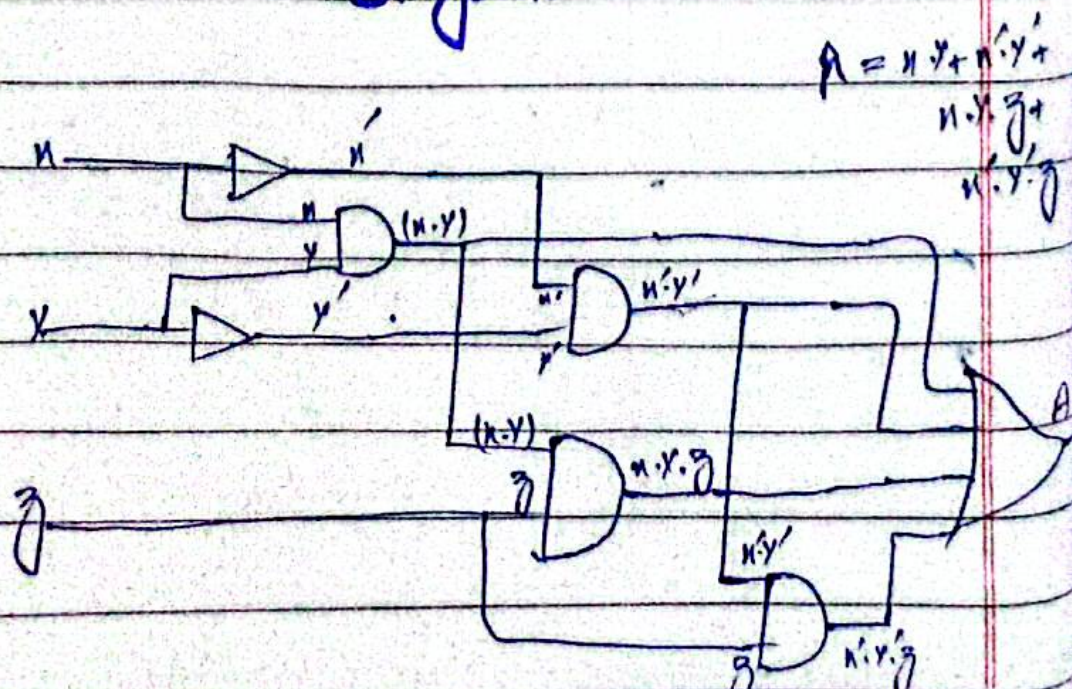 A = x.y + x'.y' +
x.y.z +
x'.y'.z
x
x'
x
y
(x.y)
y
y'
x'
y'
x'.y'
(x.y)
z
x.y.z
A
z
x'.y'
z
x'.y'.z